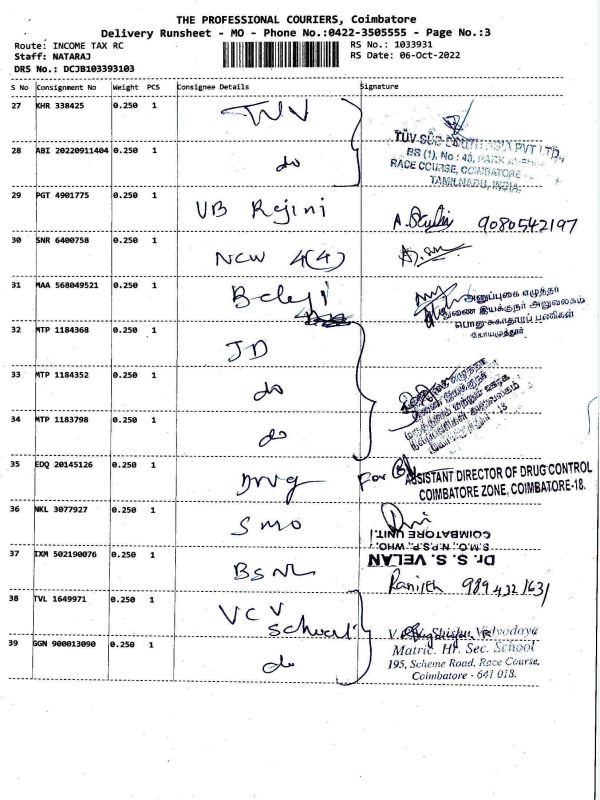 THE PROFESSIONAL COURIERS, Coimbatore
Delivery Runsheet - MO - Phone No.:0422-3505555 - Page No.:3
Route: INCOME TAX RC
RS No.: 1033931
Staff: NATARAJ
RS Date: 06-Oct-2022
DRS No.: DCJB103393103
S No Consignment No Weight PCS Consignee Details Signature
27 KHR 338425 0.250 1 TUV
TÜV SÜD SOUTH ASIA PVT LTD.,
28 ABI 20220911404 0.250 1 do
BB (1), No : 43, PARK
RACE COURSE, COIMBATORE
TAMILNADU, INDIA.
29 PGT 4901775 0.250 1 UB Rejini
9080542197
30 SNR 6400758 0.250 1 NCW 4(4)
31 MAA 568049521 0.250 1
அனுப்புகை எழுத்தர்
துணை இயக்குநர் அலுவலகம்
பொது சுகாதாரப் பணிகள்
கோயமுத்தூர்
32 MTP 1184368 0.250 1 JD
33 MTP 1184352 0.250 1 do
34 MTP 1183798 0.250 1 do
35 EDQ 20145126 0.250 1 Drug For
ASSISTANT DIRECTOR OF DRUG CONTROL
COIMBATORE ZONE, COIMBATORE-18.
36 NKL 3077927 0.250 1 SMO
Dr. S. S. VELAN
S.M.O., N.P.S.P., WHO.,
COIMBATORE UNIT
37 IXM 502190076 0.250 1 BSNL
Ranjith
38 TVL 1649971 0.250 1 VCV
School
Shishu Vidyodaya
39 GGN 900013090 0.250 1 do
Matric. Hr. Sec. School
195, Scheme Road, Race Course,
Coimbatore - 641 018.